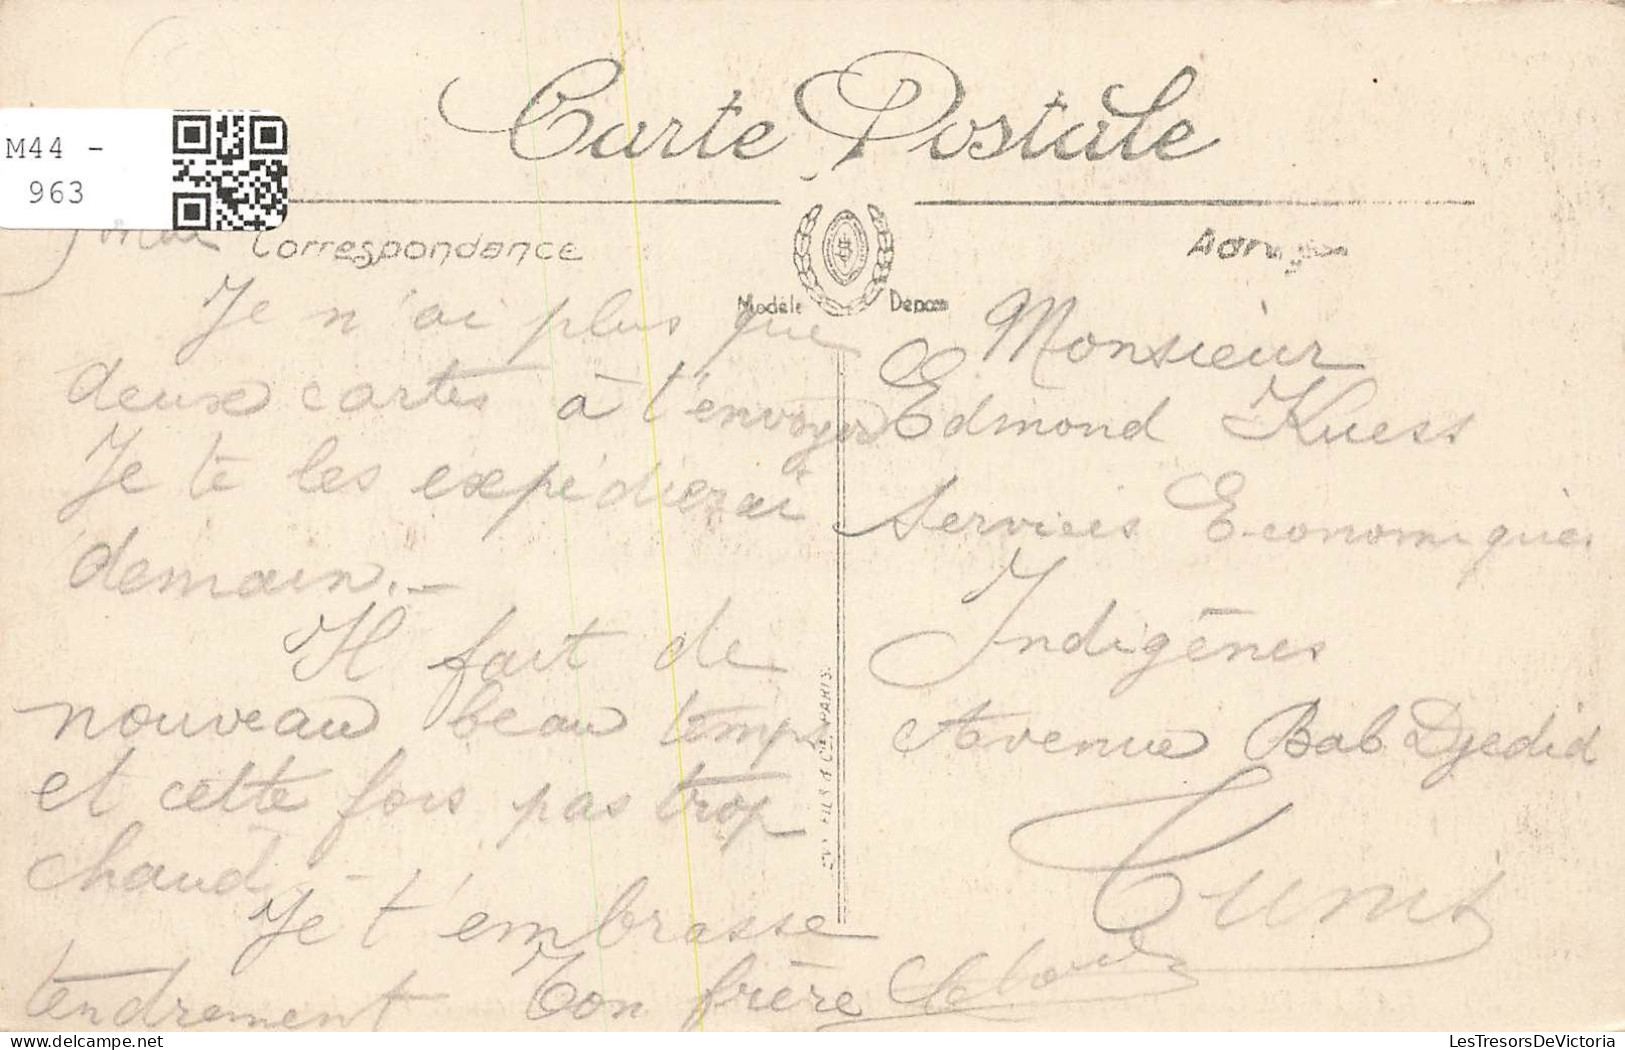 Carte Postale
M44 -
963
Correspondance
Modèle Déposé
Je n'ai plus que
deux cartes à t'envoyer
Je te les expédierai
demain. —
Il fait de
nouveau beau temps
et cette fois pas trop
chaud. —
Je t'embrasse
tendrement Ton frère
Monsieur
Edmond Kuess
Services Economiques
Indigènes
Avenue Bab Djedid
Tunis
FILS & Cie PARIS.
LesTresorsDeVictoria